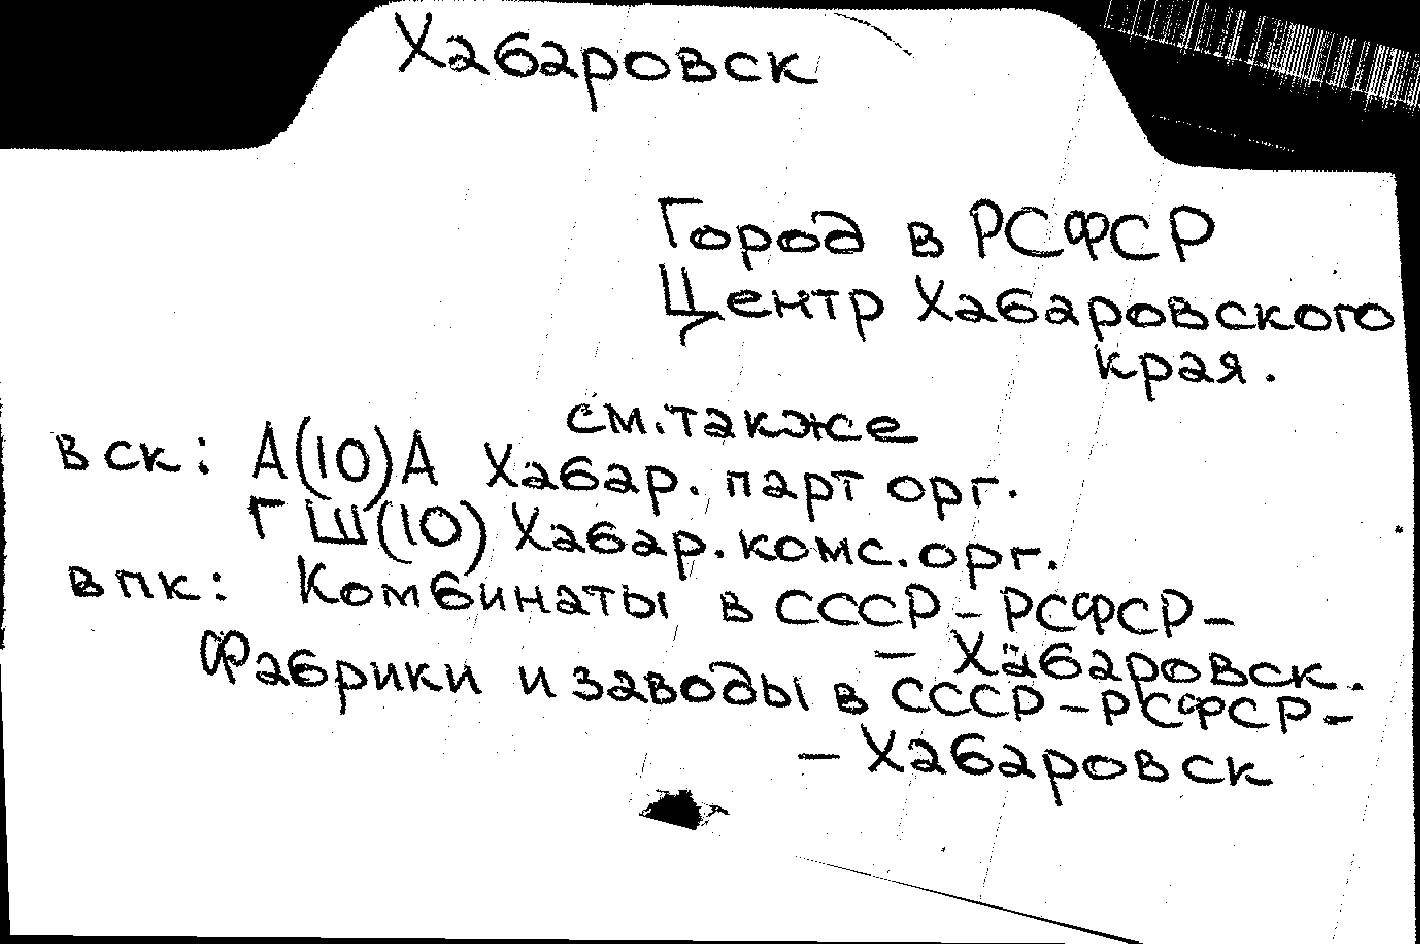 Хабаровск
Город в РСФСР
Центр Хабаровского
края.
см. также
в ск: А(10)А Хабар. парт орг.
ГШ(10) Хабар. комс. орг.
в пк: Комбинаты в СССР - РСФСР -
- Хабаровск.
Фабрики и заводы в СССР - РСФСР -
- Хабаровск